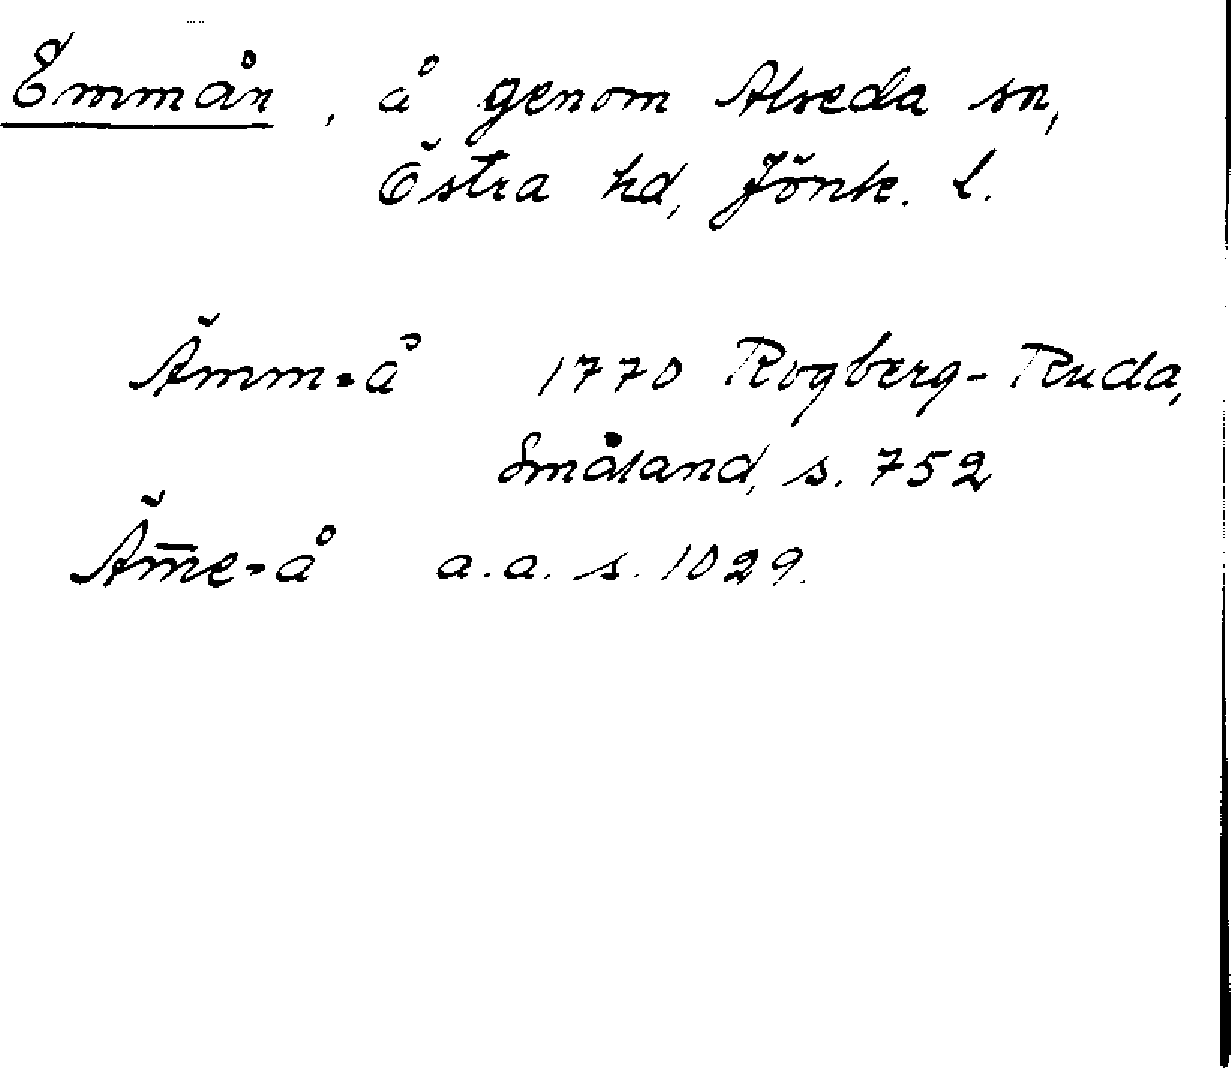 Emmån, å genom Alseda sn,
Östra hd, Jönk. l.
Ämm-å 1770 Rogberg-Ruda,
Småland, s. 752
Äm̄e-å a.a. s. 1029.